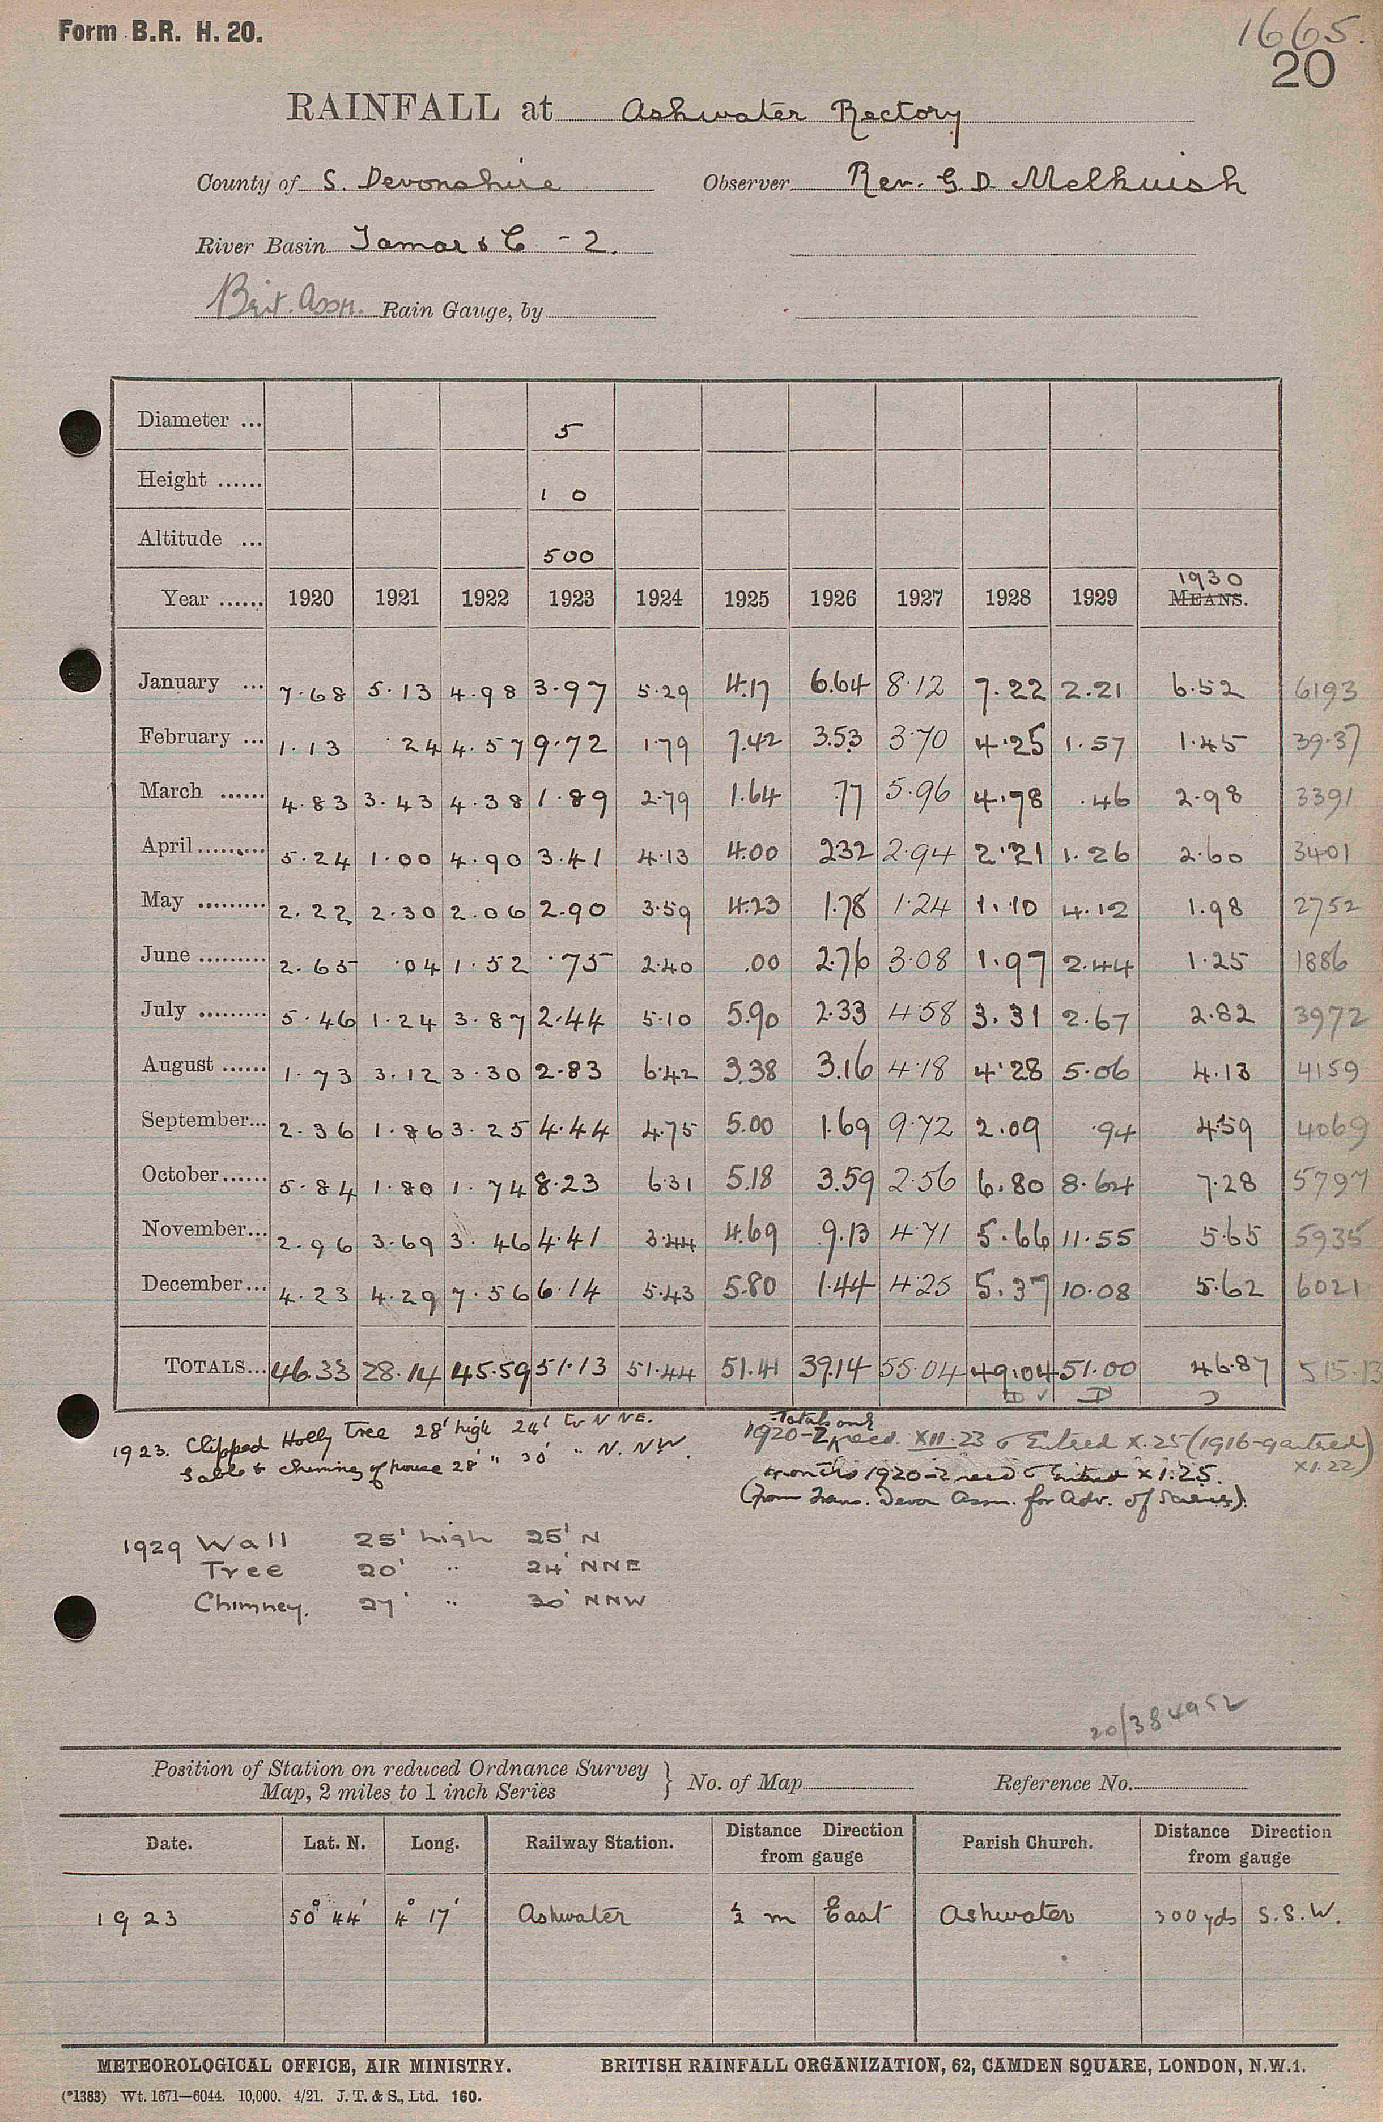 Form B.R. H. 20.
1665.
20
RAINFALL at Ashwater Rectory
County of S. Devonshire Observer Rev. G. D. Melhuish
River Basin Tamar & C - 2.
Brit. Assn. Rain Gauge, by
Diameter ... 5
Height ...... 1 0
Altitude ... 500
1930
Year ...... 1920 1921 1922 1923 1924 1925 1926 1927 1928 1929 MEANS.
January ... 7.68 5.13 4.98 3.97 5.29 4.17 6.64 8.12 7.22 2.21 6.52 6193
February ... 1.13 .24 4.57 9.72 1.79 7.42 3.53 3.70 4.25 1.57 1.45 39.37
March ...... 4.83 3.43 4.38 1.89 2.79 1.64 .77 5.96 4.78 .46 2.98 3391
April ......... 5.24 1.00 4.90 3.41 4.13 4.00 2.32 2.94 2.21 1.26 2.60 3401
May ......... 2.22 2.30 2.06 2.90 3.59 4.23 1.78 1.24 1.10 4.12 1.98 2752
June ......... 2.65 .04 1.52 .75 2.40 .00 2.76 3.08 1.97 2.44 1.25 1886
July ......... 5.46 1.24 3.87 2.44 5.10 5.90 2.33 4.58 3.31 2.67 2.82 3972
August ...... 1.73 3.12 3.30 2.83 6.42 3.38 3.16 4.18 4.28 5.06 4.13 4159
September... 2.36 1.86 3.25 4.44 4.75 5.00 1.69 9.72 2.09 .94 4.59 4069
October ...... 5.84 1.80 1.74 8.23 6.31 5.18 3.59 2.56 6.80 8.64 7.28 5797
November... 2.96 3.69 3.46 4.41 3.44 4.69 9.13 4.71 5.66 11.55 5.65 5935
December... 4.23 4.29 7.56 6.14 5.43 5.80 1.44 4.25 5.37 10.08 5.62 6021
TOTALS... 46.33 28.14 45.59 51.13 51.44 51.41 39.14 55.04 49.04 51.00 46.87 515.13
D ✓ D D
1923. Clipped Holly Tree 28' high 24' to N NE.
Gable & chimney of house 28' " 30' " N. NW.
Totals only
1920-2 recd. XII.23 & Entred X.25 (1916-9 entred X1.22)
months 1920-2 recd & Entred X1.25.
(From Trans. Devon Assn. for Adv. of Science).
1929 Wall 25' high 25' N
Tree 20' " 24' NNE
Chimney. 27' " 30' NNW
20/384952
Position of Station on reduced Ordnance Survey
Map, 2 miles to 1 inch Series } No. of Map Reference No.
Date. Lat. N. Long. Railway Station. Distance Direction from gauge Parish Church. Distance Direction from gauge
1923 50° 44' 4° 17' Ashwater ½ m East Ashwater 300 yds S.S.W.
METEOROLOGICAL OFFICE, AIR MINISTRY. BRITISH RAINFALL ORGANIZATION, 62, CAMDEN SQUARE, LONDON, N.W.1.
(*1383) Wt. 1671—6044. 10,000. 4/21. J. T. & S., Ltd. 160.